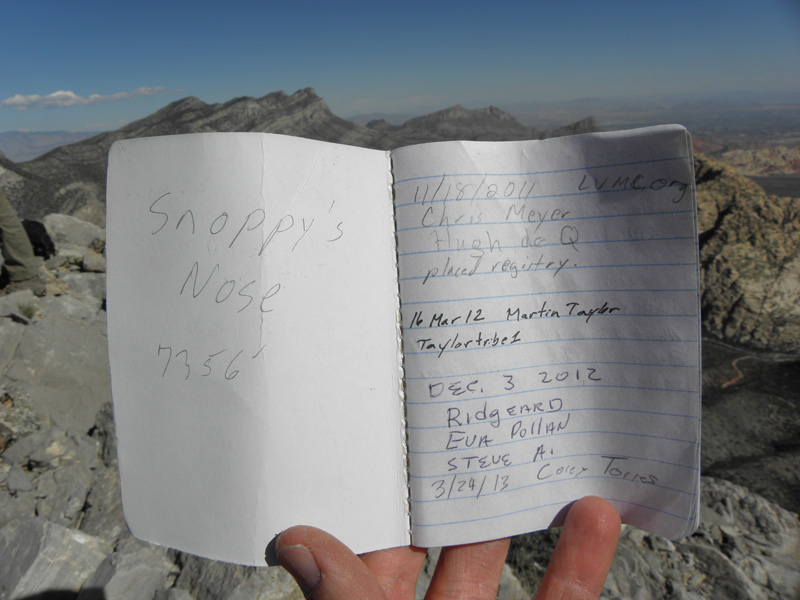 Snoppy's
Nose
7356'
11/18/2011 LVMC.org
Chris Meyer
Hugh de Q
placed registry.
16 Mar 12 Martin Taylor
Taylortribe1
DEC. 3 2012
RidgEARD
EVA POllAN
STEVE A.
3/24/13 Corey Torres